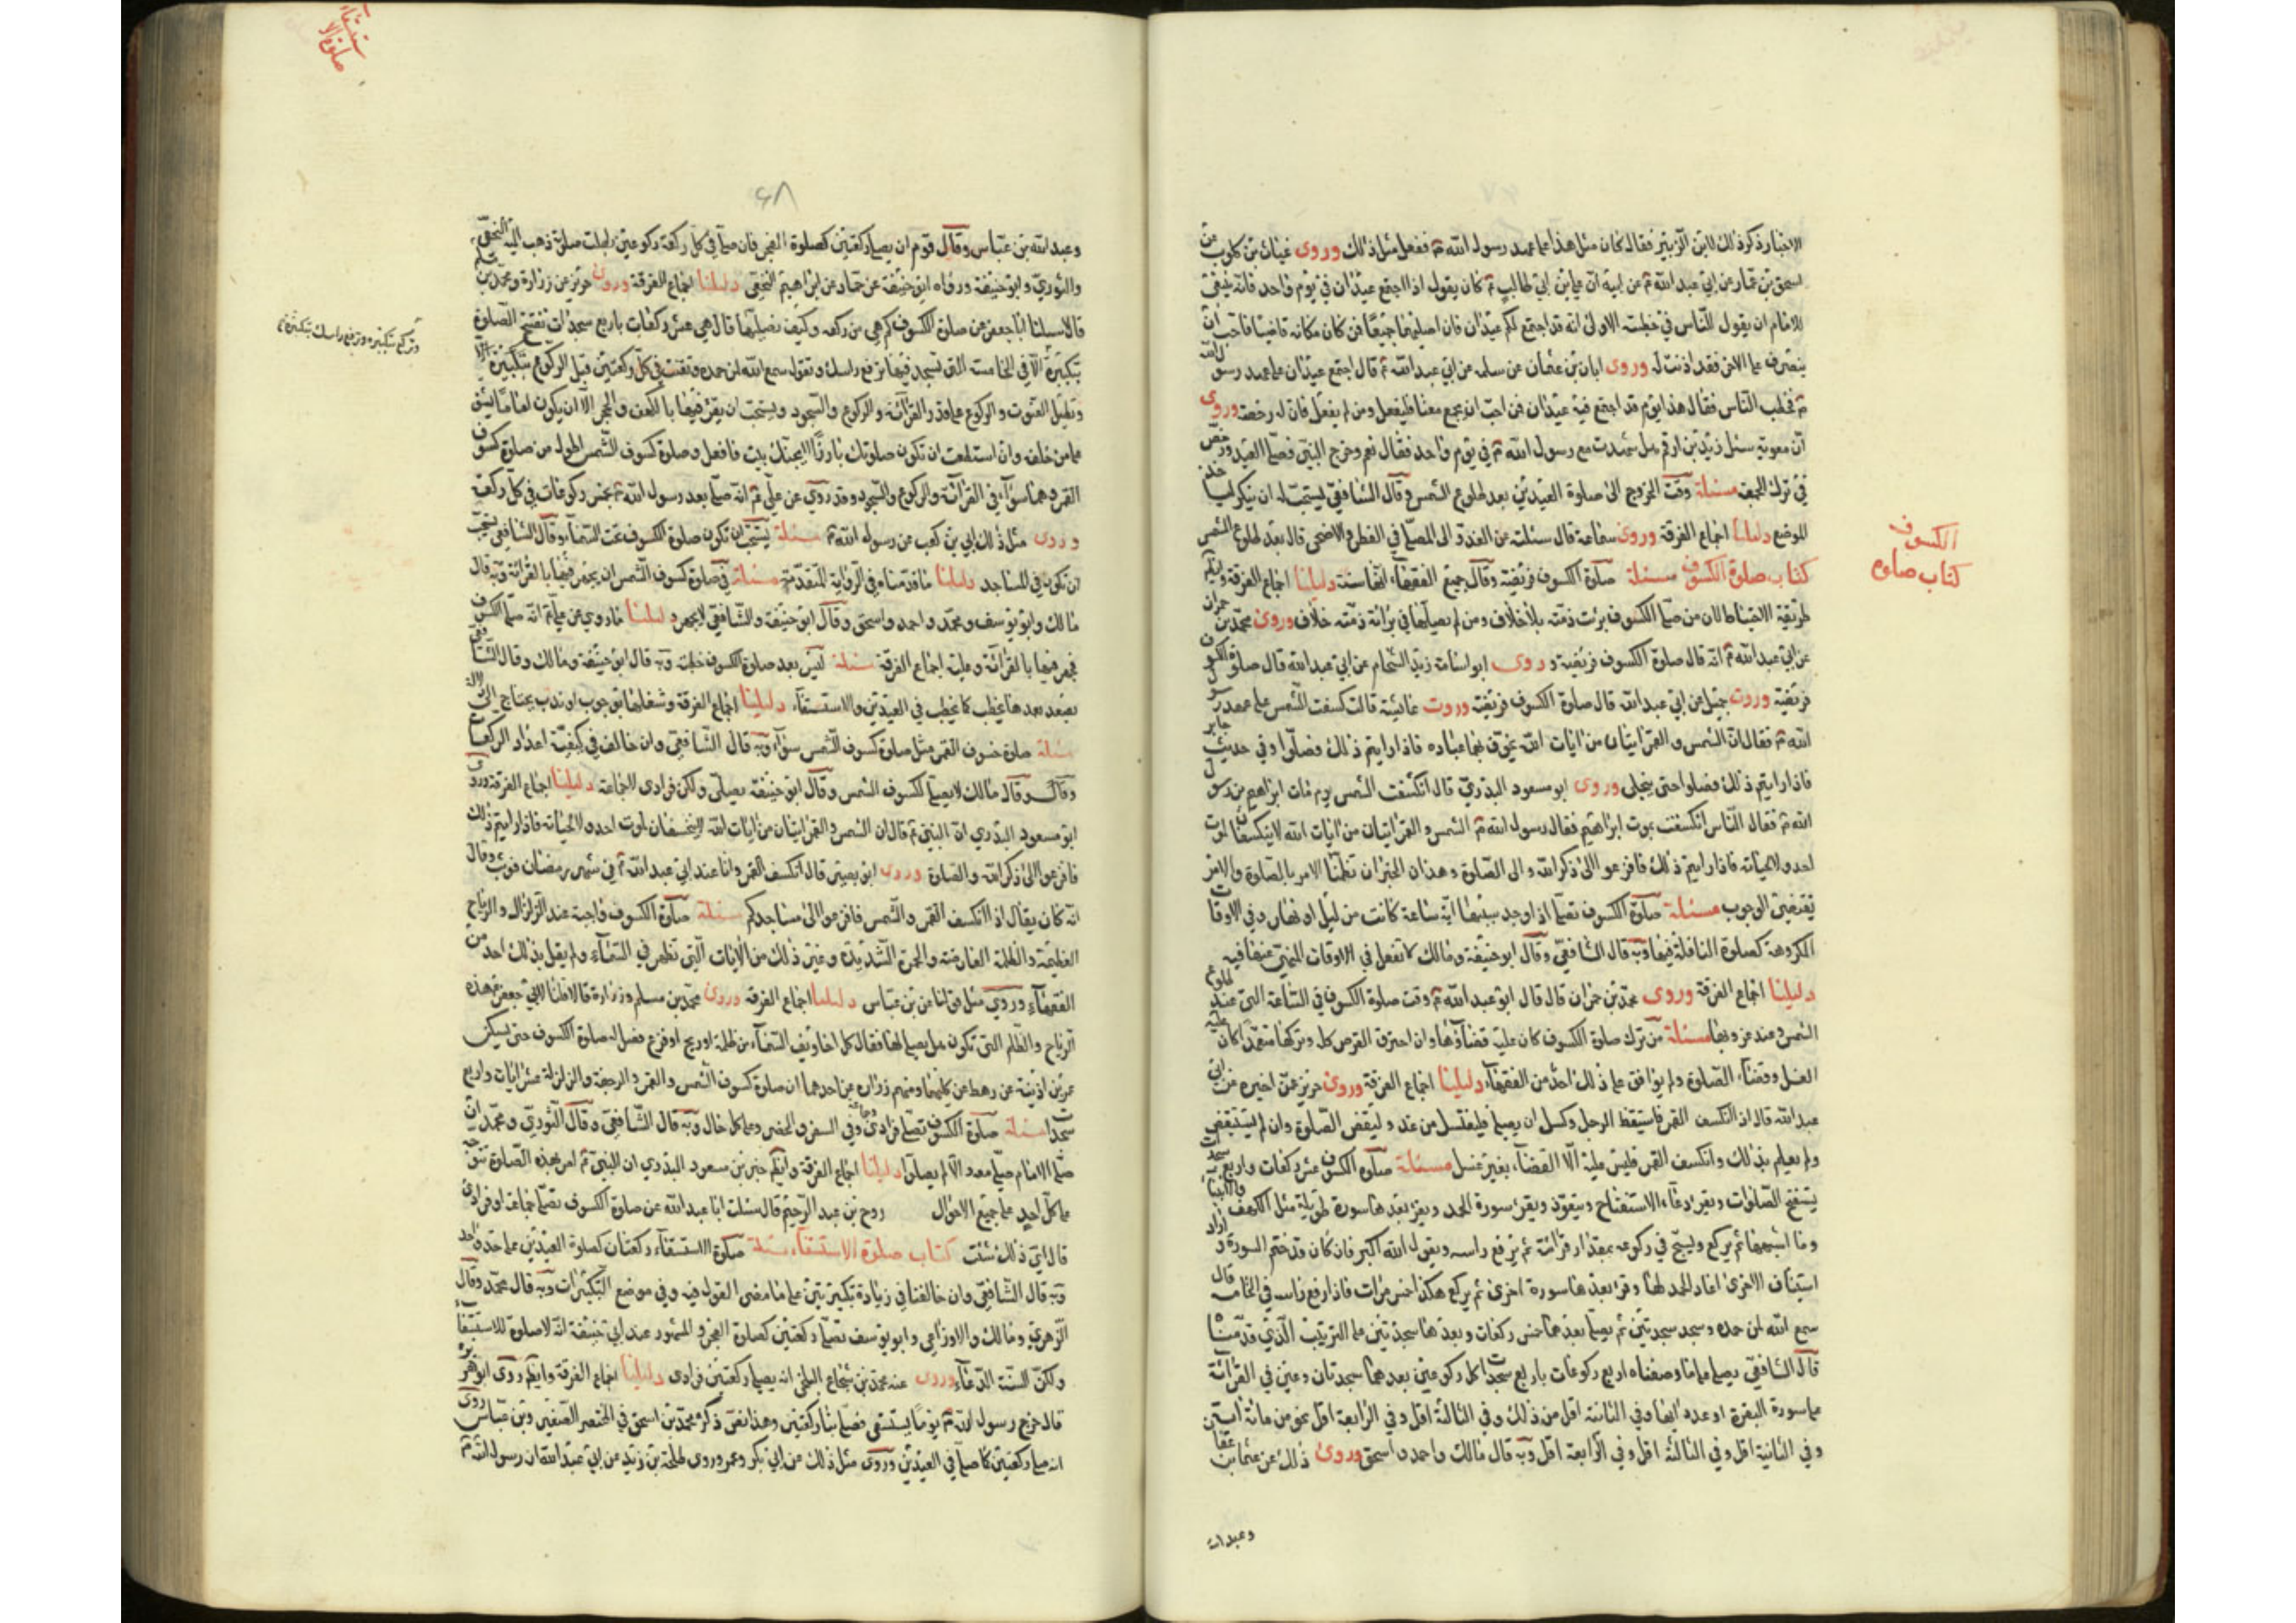 الاخبار ذكر ذلك لابن الزبير فقال كان مثل هذا على عهد رسول الله ففعل مثل ذلك وروى غياث بن كلوب عن
اسحق بن عمار عن ابي عبد الله عن ابيه ان علي بن ابي طالب كان يقول اذا اجتمع عيدان في يوم واحد فانه ينبغي
للامام ان يقول للناس في خطبته الاولى انه قد اجتمع لكم عيدان فان اصليهما جميعا فمن كان مكانه قاصيا فاحب ان
ينصرف عن الاخر فقد اذنت له وروى ابان بن عثمان عن سلمة عن ابي عبد الله قال اجتمع عيدان على عهد رسول الله
فخطب الناس فقال هذا يوم قد اجتمع فيه عيدان فمن احب ان يجمع معنا فليفعل ومن لم يفعل فان له رخصة وروى
ان معوية سئل زيد بن ارقم هل شهدت مع رسول الله في يوم واحد فقال نعم وخرج النبي فصلى العيد ورخص
في ترك الجمعة مسئلة وقت الخروج الى صلوة العيدين بعد طلوع الشمس وقال الشافعي يستحب له ان يبكر لياخذ
الموضع دليلنا اجماع الفرقة وروى سماعة قال سئلته عن الغدو الى المصلى في الفطر والاضحى قال بعد طلوع الشمس
كتاب صلوة الكسوف مسئلة صلوة الكسوف فريضة وقال جميع الفقهاء انها سنة دليلنا اجماع الفرقة وايضا
طريقة الاحتياط لان من صلى الكسوف برئت ذمته بلا خلاف ومن لم يصلها في برائة ذمته خلاف وروى محمد بن حمران
عن ابي عبد الله انه قال صلوة الكسوف فريضة وروى ابو اسامة زيد الشحام عن ابي عبد الله قال صلوة الكسوف
فريضة وروى جميل عن ابي عبد الله قال صلوة الكسوف فريضة وروت عائشة قالت كسفت الشمس على عهد رسول
الله فقال ان الشمس والقمر ايتان من ايات الله يخوف بهما عباده فاذا رايتم ذلك فصلوا وفي حديث جابر
فاذا رايتم ذلك فصلوا حتى ينجلى وروى ابو مسعود البدري قال انكسفت الشمس يوم مات ابراهيم بن رسول
الله فقال الناس انكسفت بموت ابراهيم فقال رسول الله الشمس والقمر ايتان من ايات الله لا ينكسفان لموت
احد ولا لحياته فاذا رايتم ذلك فافزعوا الى ذكر الله والى الصلوة وهذان الخبران تظمنا الامر بالصلوة والامر
يقتضي الوجوب مسئلة صلوة الكسوف تصلى اذا وجد سببها اية ساعة كانت من ليل او نهار وفي الاوقات
المكروهة كصلوة النافلة فيها وبه قال الشافعي وقال ابو حنيفة ومالك لا تفعل في الاوقات المنهي عنها فيه
دليلنا اجماع الفرقة وروى محمد بن حمران قال قال ابو عبد الله وقت صلوة الكسوف في الساعة التي عند طلوع
الشمس وعند غروبها مسئلة من ترك صلوة الكسوف كان عليه قضاؤها وان احترق القرص كله وتركها متعمدا كان عليه
الغسل وقضاء الصلوة ولم يوافق على ذلك احد من الفقهاء دليلنا اجماع الفرقة وروى حريز عمن اخبره عن ابي
عبد الله قال اذا انكسف القمر فاستيقظ الرجل وكسل ان يصلي فليغتسل من غد وليقض الصلوة وان لم يستيقظ
ولم يعلم بذلك وانكسف القمر فليس عليه الا القضاء بغير غسل مسئلة صلوة الكسوف عشر ركعات واربع سجدات
يستفتح الصلوات ويقرء دعاء الاستفتاح ويتعوذ ويقرء سورة الحمد ويقرء بعدها سورة طويلة مثل الكهف والانبياء
وما اشبههما ثم يركع ويسبح في ركوعه بمقدار قرائته ثم يرفع راسه ويقول الله اكبر فان كان قد ختم السورة واراد
استيناف الاخرى اعاد الحمد لها وقرء بعدها سورة اخرى ثم يركع هكذا خمس مرات فاذا رفع راسه في الخامسة قال
سمع الله لمن حمده وسجد سجدتين ثم يصلي بعدها خمس ركعات وبعدها سجدتين على الترتيب الذي قدمناه
قال الشافعي يصلي على ما وصفناه اربع ركوعات باربع سجدات كل ركوعين بعدهما سجدتان وعين في القرائة
على سورة البقرة او عدد ايها وفي الثانية اقل من ذلك وفي الثالثة اقل وفي الرابعة اقل نحو من مائة ايتين
وفي الثانية اقل وفي الثالثة اقل وفي الرابعة اقل وبه قال مالك واحمد واسحق وروى ذلك عن عثمان بن عفان
وعبد الله
الكسوف
كتاب صلوة
صلوة الاستسقاء
۶۸
وعبد الله بن عباس وقال قوم ان يصلى ركعتين كصلوة الفجر فان صلى في كل ركعة ركوعين بطلت صلوته ذهب اليه النخعي
والثوري وابو حنيفة ورواه ابو حنيفة عن حماد عن ابراهيم النخعي دليلنا اجماع الفرقة وروى حريز عن زرارة ومحمد بن مسلم
قالا سئلنا ابا جعفر عن صلوة الكسوف كم هي من ركعة وكيف نصليها قال هي عشر ركعات باربع سجدات تفتتح الصلوة
بتكبيرة الا في الخامسة التي تسجد فيها ترفع راسك وتقول سمع الله لمن حمده وتقنت في كل ركعتين قبل الركوع بتكبيرة الا
وتركع بتكبيرة وترفع راسك بتكبيرة
وتطيل القنوت والركوع على قدر القرائة والركوع والسجود ويستحب ان يقرء فيها بالكهف والحجر الا ان يكون اماما يشق
على من خلفه وان استطعت ان تكون صلوتك بارزا لا يجنك بيت فافعل وصلوة كسوف الشمس اطول من صلوة كسوف
القمر وهما سواء في القرائة والركوع والسجود وقد روي عن علي انه صلى بعد رسول الله بخمس ركوعات في كل ركعة
وروى مثل ذلك ابي بن كعب عن رسول الله مسئلة يستحب ان تكون صلوة الكسوف تحت السماء وقال الشافعي يستحب
ان تكون في المساجد دليلنا ما قدمناه في الرواية المتقدمة مسئلة في صلوة كسوف الشمس ان يجهر فيها بالقرائة وبه قال
مالك وابو يوسف ومحمد واحمد واسحق وقال ابو حنيفة والشافعي لا يجهر دليلنا ما روي عن علي انه صلى الكسوف
فجهر فيها بالقرائة وعليه اجماع الفرقة مسئلة ليس بعد صلوة الكسوف خطبة وبه قال ابو حنيفة ومالك وقال الشافعي
يصعد بعدها يخطب كما يخطب في العيدين والاستسقاء دليلنا اجماع الفرقة وشغلها بوجوب او ندب يحتاج الى دلالة
مسئلة صلوة خسوف القمر مثل صلوة كسوف الشمس سواء وبه قال الشافعي وان خالف في كيفية اعداد الركعات
وقال مالك لا يصلى لكسوف الشمس وقال ابو حنيفة يصلى ولكن فرادى لا بجماعة دليلنا اجماع الفرقة وروى
ابو مسعود البدري ان النبي قال ان الشمس والقمر ايتان من ايات الله لا يخسفان لموت احد ولا لحياته فاذا رايتم ذلك
فافزعوا الى ذكر الله والصلوة وروى ابو بصير قال انكسف القمر وانا عند ابي عبد الله في شهر رمضان فوثب وقال
انه كان يقال اذا انكسف القمر والشمس فافزعوا الى مساجدكم مسئلة صلوة الكسوف واجبة عند الزلزال والرياح
العظيمة والظلمة العارضة والحمرة الشديدة وغير ذلك من الايات التي تظهر في السماء ولم يقل بذلك احد من
الفقهاء وروي مثل قولنا عن ابن عباس دليلنا اجماع الفرقة وروى محمد بن مسلم وزرارة قالا قلنا لابي جعفر هذه
الرياح والظلم التي تكون هل يصلى لها فقال كل اخاويف السماء من ظلمة او ريح او فزع فصل له صلوة الكسوف حتى يسكن
عمر بن اذينة عن رهط عن كليهما ومنهم من رواه عن احدهما ان صلوة كسوف الشمس والقمر والرجفة والزلزلة عشر ركعات واربع
سجدات مسئلة صلوة الكسوف تصلى فرادى وجماعة وفي السفر والحضر وعلى كل حال وبه قال الشافعي وقال الثوري ومحمد ان
صلى الامام صلى معه والا لم يصلوا دليلنا اجماع الفرقة وايضا خبر ابن مسعود البدري ان النبي امر بهذه الصلوة متوجه
على كل احد على جميع الاحوال روح بن عبد الرحيم قال سئلت ابا عبد الله عن صلوة الكسوف تصلى جماعة او فرادى
قال اي ذلك شئت كتاب صلوة الاستسقاء مسئلة صلوة الاستسقاء ركعتان كصلوة العيدين على حد واحد
وبه قال الشافعي وان خالفنا في زيادة تكبيرتين على ما مضى القول فيه وفي موضع التكبيرات وبه قال محمد وقال
الزهري ومالك والاوزاعي وابو يوسف تصلى ركعتين كصلوة الفجر والمشهور عند ابي حنيفة انه لا صلوة للاستسقاء
ولكن السنة الدعاء وروى عنه محمد بن شجاع البلخي انه يصلى ركعتين فرادى دليلنا اجماع الفرقة وايضا روى ابو هريرة
قال خرج رسول الله يوما يستسقى فصلى بنا ركعتين وهذا نص ذكره محمد بن اسحق في المختصر الصغير وابن عباس روى
انه صلى ركعتين كما صلى في العيدين وروى مثل ذلك عن ابي بكر وعمر وروى طلحة بن زيد عن ابي عبد الله ان رسول الله